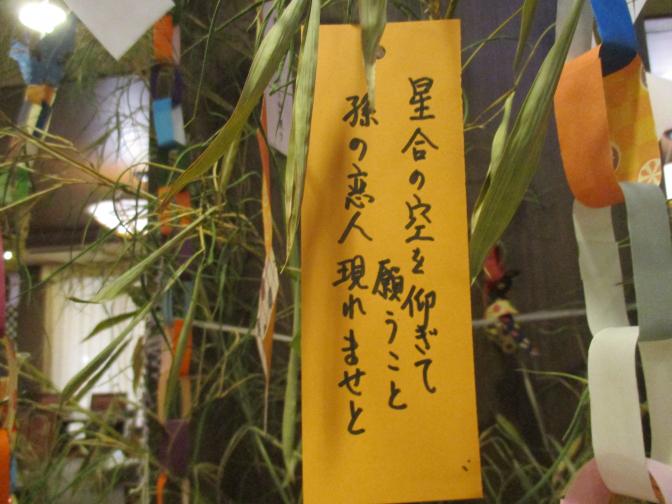 星合の空を仰ぎて
願うこと
孫の恋人現れませと